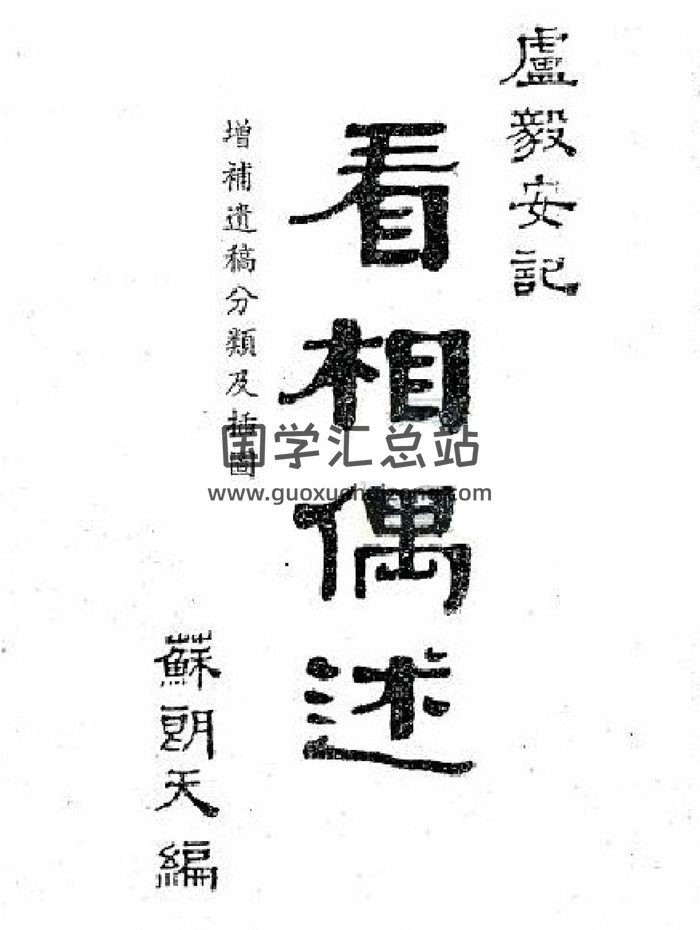 盧毅安記
看相偶述
增補遺稿分類及插圖
蘇朗天編
国学汇总站
www.guoxuehuizong.com